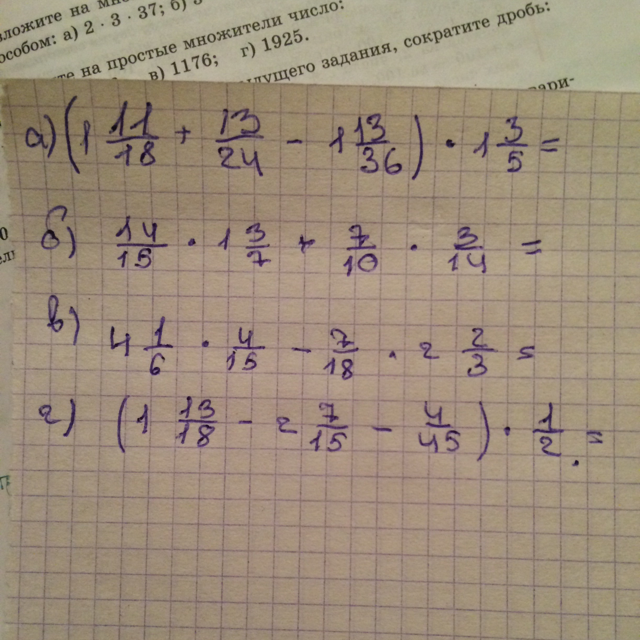 вложите на мн
особом: а) 2 · 3 · 37; б)
те на простые множители число:
в) 1176; г) 1925.
ыдущего задания, сократите дробь:
вари-
а) (1 11/18 + 13/24 - 1 13/36) · 1 3/5 =
б) 14/15 · 1 3/7 + 7/10 · 3/14 =
в) 4 1/6 · 4/15 - 7/18 · 2 2/3 =
г) (1 13/18 - 2 7/15 - 4/45) · 1/2 =